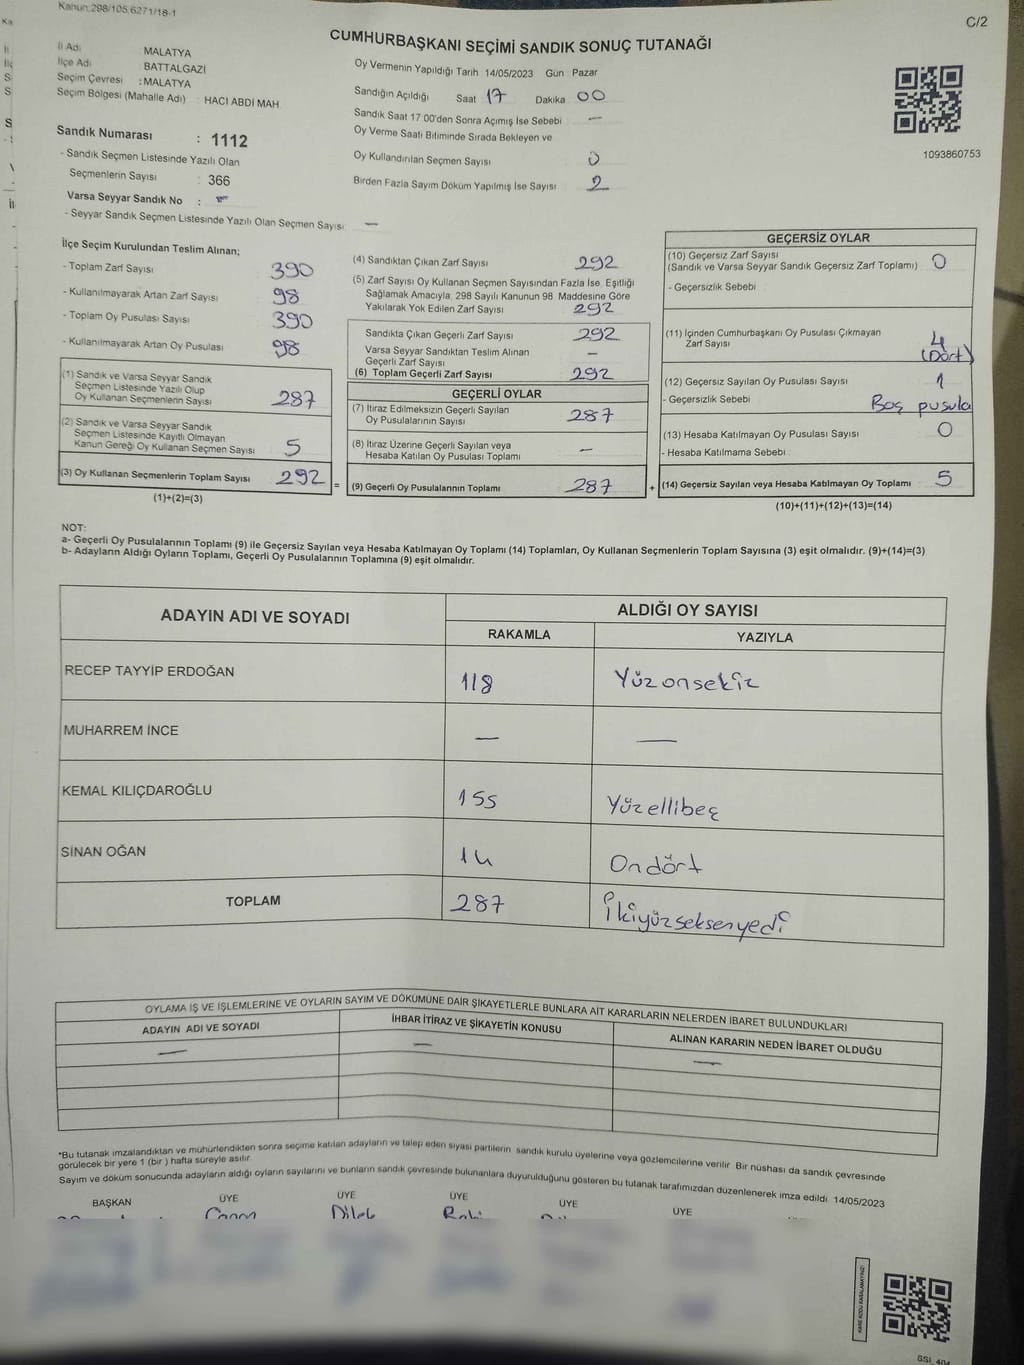 Kanun:298/105,6271/18-1
C/2
CUMHURBAŞKANI SEÇİMİ SANDIK SONUÇ TUTANAĞI
İl Adı : MALATYA
İlçe Adı : BATTALGAZİ
Seçim Çevresi : MALATYA
Seçim Bölgesi (Mahalle Adı) : HACI ABDİ MAH
Sandık Numarası : 1112
- Sandık Seçmen Listesinde Yazılı Olan
Seçmenlerin Sayısı : 366
Varsa Seyyar Sandık No : –
- Seyyar Sandık Seçmen Listesinde Yazılı Olan Seçmen Sayısı: —
Oy Vermenin Yapıldığı Tarih : 14/05/2023 Gün : Pazar
Sandığın Açıldığı Saat 17 Dakika 00
Sandık Saat 17:00'den Sonra Açımış İse Sebebi —
Oy Verme Saati Bitiminde Sırada Bekleyen ve
Oy Kullandırılan Seçmen Sayısı 0
Birden Fazla Sayım Döküm Yapılmış İse Sayısı 2
1093860753
İlçe Seçim Kurulundan Teslim Alınan;
- Toplam Zarf Sayısı 390
- Kullanılmayarak Artan Zarf Sayısı 98
- Toplam Oy Pusulası Sayısı 390
- Kullanılmayarak Artan Oy Pusulası 98
(1) Sandık ve Varsa Seyyar Sandık
Seçmen Listesinde Yazılı Olup
Oy Kullanan Seçmenlerin Sayısı 287
(2) Sandık ve Varsa Seyyar Sandık
Seçmen Listesinde Kayıtlı Olmayan
Kanun Gereği Oy Kullanan Seçmen Sayısı 5
(3) Oy Kullanan Seçmenlerin Toplam Sayısı 292 =
(1)+(2)=(3)
(4) Sandıktan Çıkan Zarf Sayısı 292
(5) Zarf Sayısı Oy Kullanan Seçmen Sayısından Fazla İse, Eşitliği
Sağlamak Amacıyla, 298 Sayılı Kanunun 98. Maddesine Göre
Yakılarak Yok Edilen Zarf Sayısı 292
Sandıkta Çıkan Geçerli Zarf Sayısı 292
Varsa Seyyar Sandıktan Teslim Alınan
Geçerli Zarf Sayısı —
(6) Toplam Geçerli Zarf Sayısı 292
GEÇERLİ OYLAR
(7) İtiraz Edilmeksizin Geçerli Sayılan
Oy Pusulalarının Sayısı 287
(8) İtiraz Üzerine Geçerli Sayılan veya
Hesaba Katılan Oy Pusulası Toplamı —
(9) Geçerli Oy Pusulalarının Toplamı 287 +
GEÇERSİZ OYLAR
(10) Geçersiz Zarf Sayısı 0
(Sandık ve Varsa Seyyar Sandık Geçersiz Zarf Toplamı)
- Geçersizlik Sebebi
(11) İçinden Cumhurbaşkanı Oy Pusulası Çıkmayan
Zarf Sayısı 4
(Dört)
(12) Geçersiz Sayılan Oy Pusulası Sayısı 1
- Geçersizlik Sebebi Boş pusula
(13) Hesaba Katılmayan Oy Pusulası Sayısı 0
- Hesaba Katılmama Sebebi
(14) Geçersiz Sayılan veya Hesaba Katılmayan Oy Toplamı 5
(10)+(11)+(12)+(13)=(14)
NOT:
a- Geçerli Oy Pusulalarının Toplamı (9) ile Geçersiz Sayılan veya Hesaba Katılmayan Oy Toplamı (14) Toplamları, Oy Kullanan Seçmenlerin Toplam Sayısına (3) eşit olmalıdır. (9)+(14)=(3)
b- Adayların Aldığı Oyların Toplamı, Geçerli Oy Pusulalarının Toplamına (9) eşit olmalıdır.
ADAYIN ADI VE SOYADI ALDIĞI OY SAYISI
RAKAMLA YAZIYLA
RECEP TAYYİP ERDOĞAN 118 Yüzonsekiz
MUHARREM İNCE — —
KEMAL KILIÇDAROĞLU 155 Yüzellibeş
SİNAN OĞAN 14 Ondört
TOPLAM 287 İkiyüzseksenyedi
OYLAMA İŞ VE İŞLEMLERİNE VE OYLARIN SAYIM VE DÖKÜMÜNE DAİR ŞİKAYETLERLE BUNLARA AİT KARARLARIN NELERDEN İBARET BULUNDUKLARI
ADAYIN ADI VE SOYADI İHBAR İTİRAZ VE ŞİKAYETİN KONUSU ALINAN KARARIN NEDEN İBARET OLDUĞU
— — —
*Bu tutanak imzalandıktan ve mühürlendikten sonra seçime katılan adayların ve talep eden siyasi partilerin sandık kurulu üyelerine veya gözlemcilerine verilir. Bir nüshası da sandık çevresinde
görülecek bir yere 1 (bir ) hafta süreyle asılır.
Sayım ve döküm sonucunda adayların aldığı oyların sayılarını ve bunların sandık çevresinde bulunanlara duyurulduğunu gösteren bu tutanak tarafımızdan düzenlenerek imza edildi. 14/05/2023
BAŞKAN ÜYE ÜYE ÜYE ÜYE ÜYE
Dilek
KARE KODU KARALAMAYINIZ!